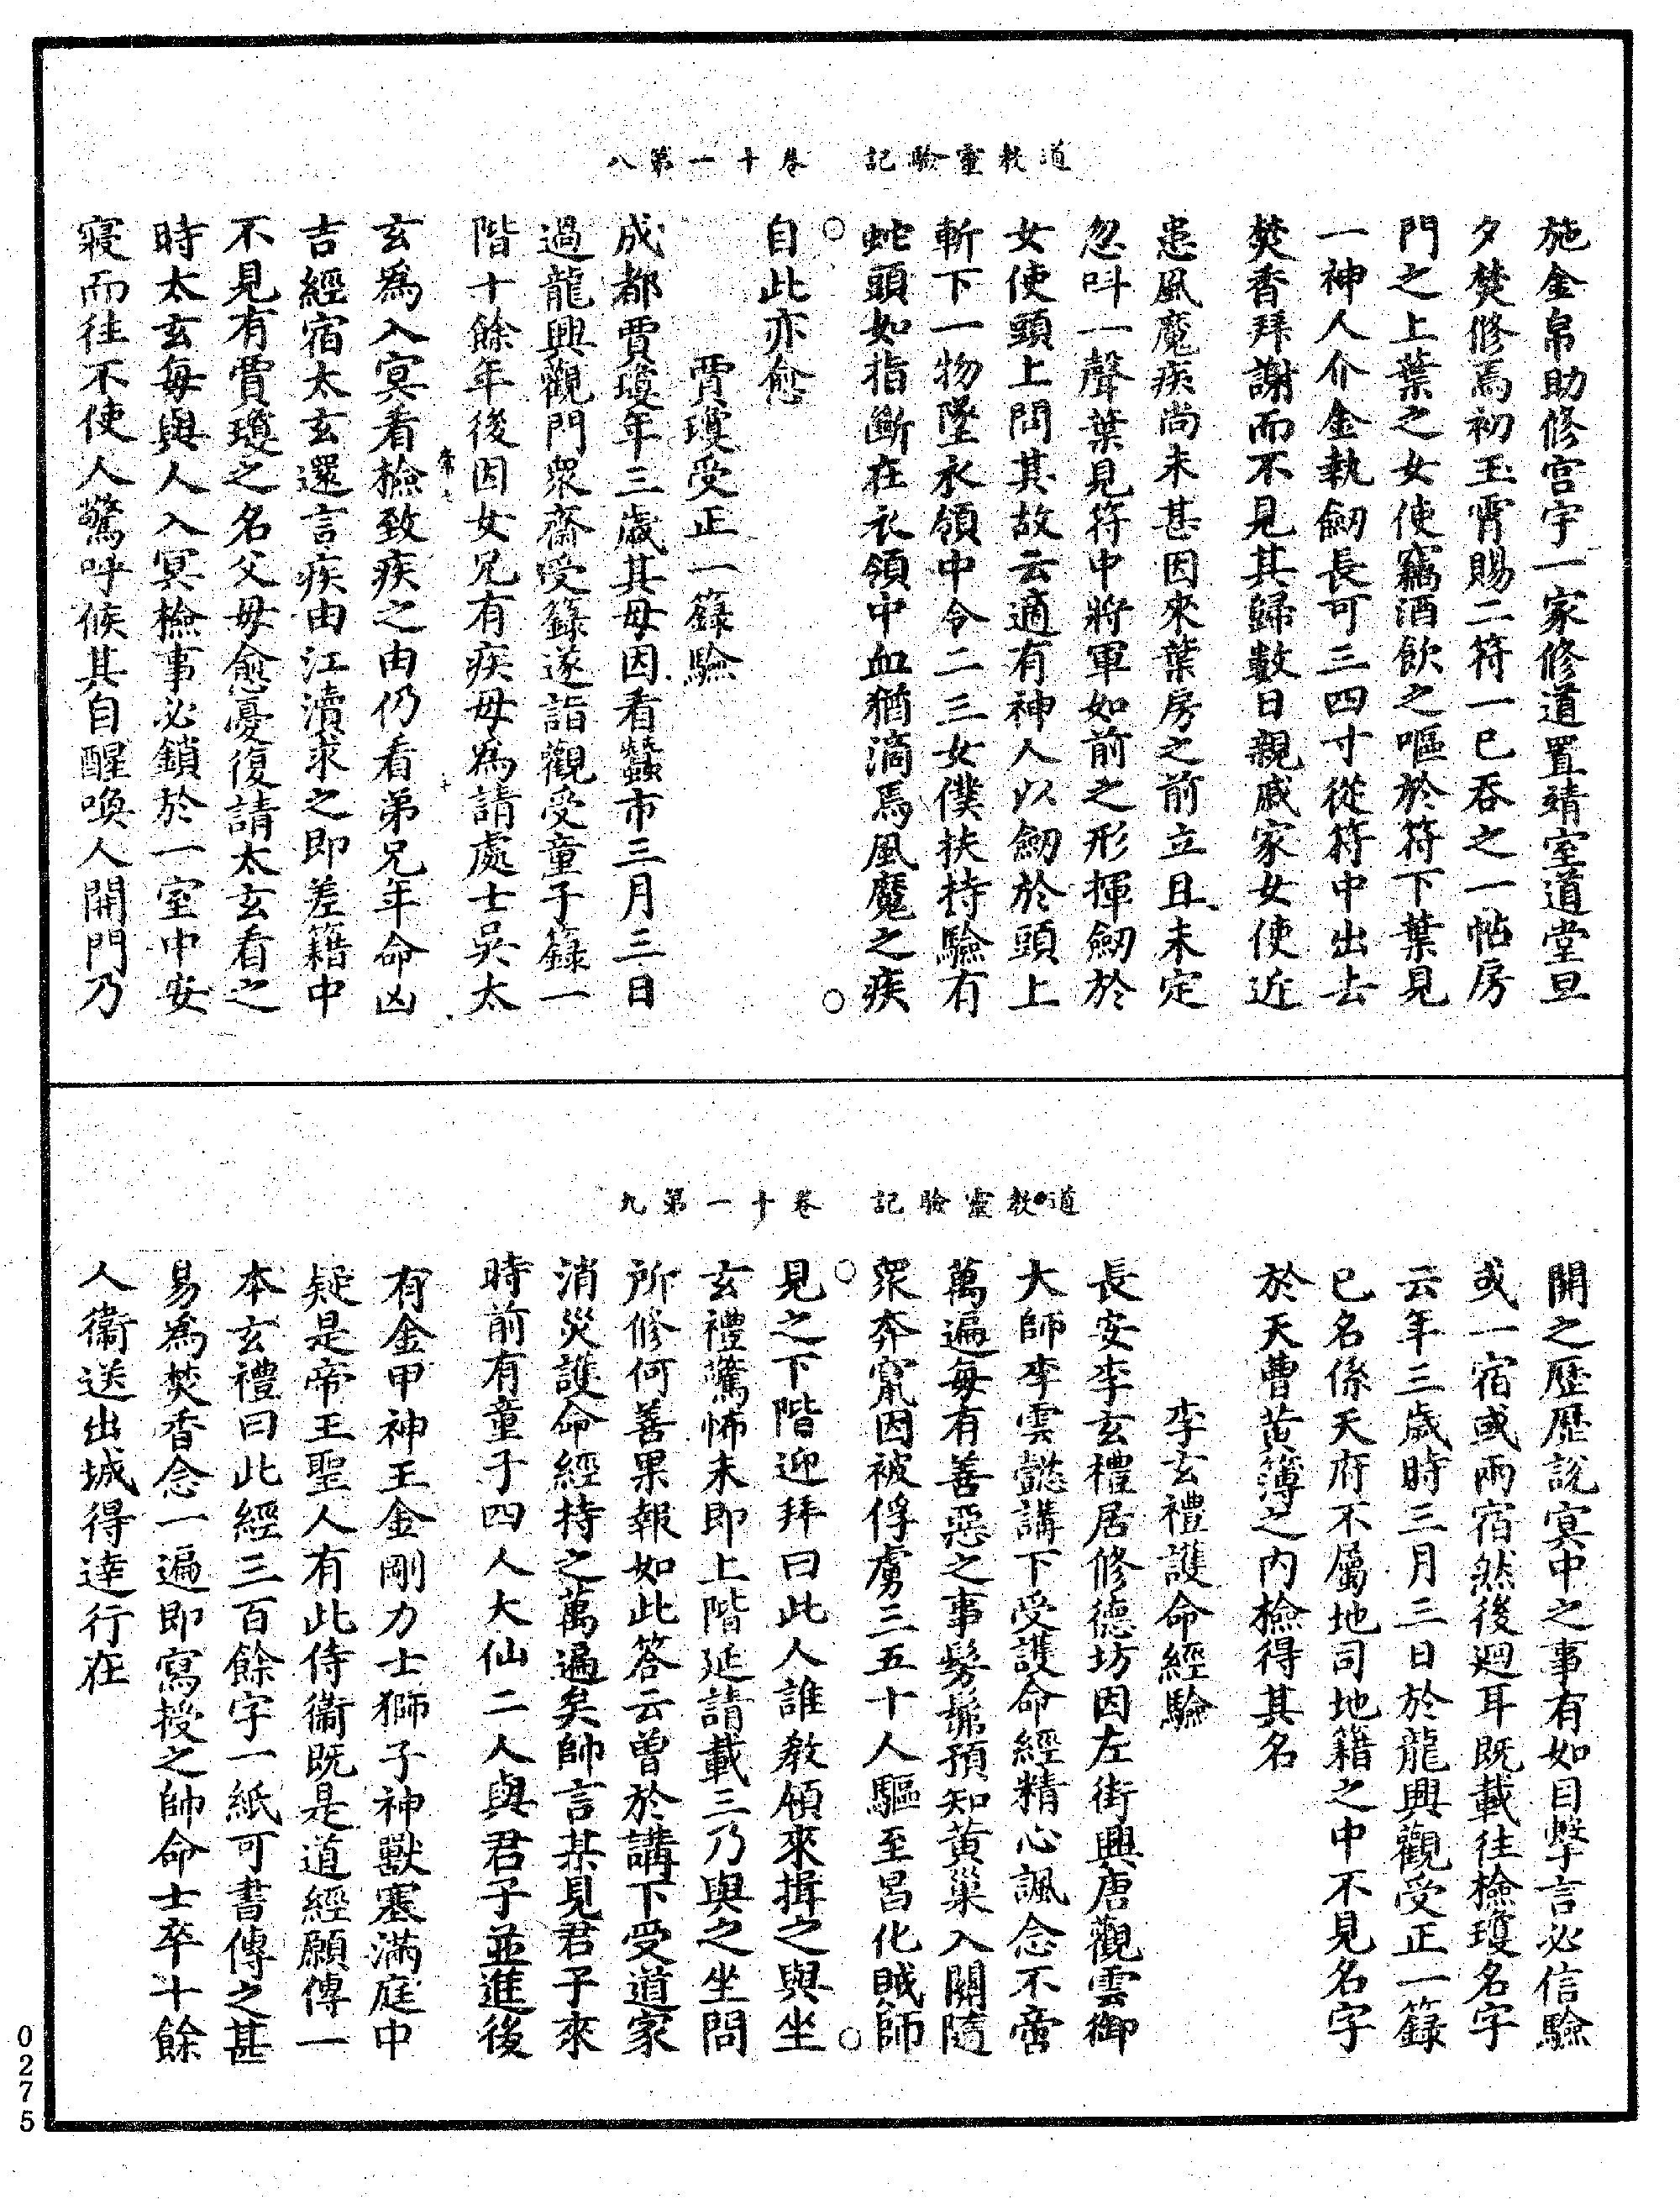 道教靈驗記　卷十一第八
施金帛助修宮宇一家修道置靖室道堂旦
夕焚修焉初玉霄賜二符一已吞之一帖房
門之上葉之女使竊酒飲之嘔於符下葉見
一神人介金執劒長可三四寸從符中出去
焚香拜謝而不見其歸數日親戚家女使近
患風魔疾尚未甚因來葉房之前立且未定
忽呌一聲葉見符中將軍如前之形揮劒於
女使頭上問其故云適有神人以劒於頭上
斬下一物墜衣領中令二三女僕扶持驗有
蛇頭如指斷在衣領中血猶滴焉風魔之疾
自此亦愈
賈瓊受正一籙驗
成都賈瓊年三歲其母因看蠶市三月三日
過龍興觀門眾齋受籙遂詣觀受童子籙一
階十餘年後因女兄有疾母為請處士吳太
玄為入冥看檢致疾之由仍看弟兄年命凶
吉經宿太玄還言疾由江瀆求之即差籍中
不見有賈瓊之名父母愈憂復請太玄看之
時太玄每與人入冥檢事必鎖於一室中安
寢而往不使人驚呼候其自醒喚人開門乃
道教靈驗記　卷十一第九
開之歷歷說冥中之事有如目擊言必信驗
或一宿或兩宿然後迴耳既載往檢瓊名字
云年三歲時三月三日於龍興觀受正一籙
已名係天府不屬地司地籍之中不見名字
於天曹黃簿之內檢得其名
李玄禮護命經驗
長安李玄禮居修德坊因左街興唐觀雲御
大師李雲懿講下受護命經精心諷念不啻
萬遍每有善惡之事髣髴預知黃巢入關隨
眾奔竄因被俘虜三五十人驅至呂化賊師
見之下階迎拜曰此人誰教領來揖之與坐
玄禮驚怖未即上階延請載三乃與之坐問
所修何善果報如此答云曾於講下受道家
消災護命經持之萬遍矣帥言某見君子來
時前有童子四人大仙二人與君子並進後
有金甲神王金剛力士獅子神獸塞滿庭中
疑是帝王聖人有此侍衞既是道經願傳一
本玄禮曰此經三百餘字一紙可書傳之甚
易為焚香念一遍即寫授之帥命士卒十餘
人衞送出城得達行在
0275